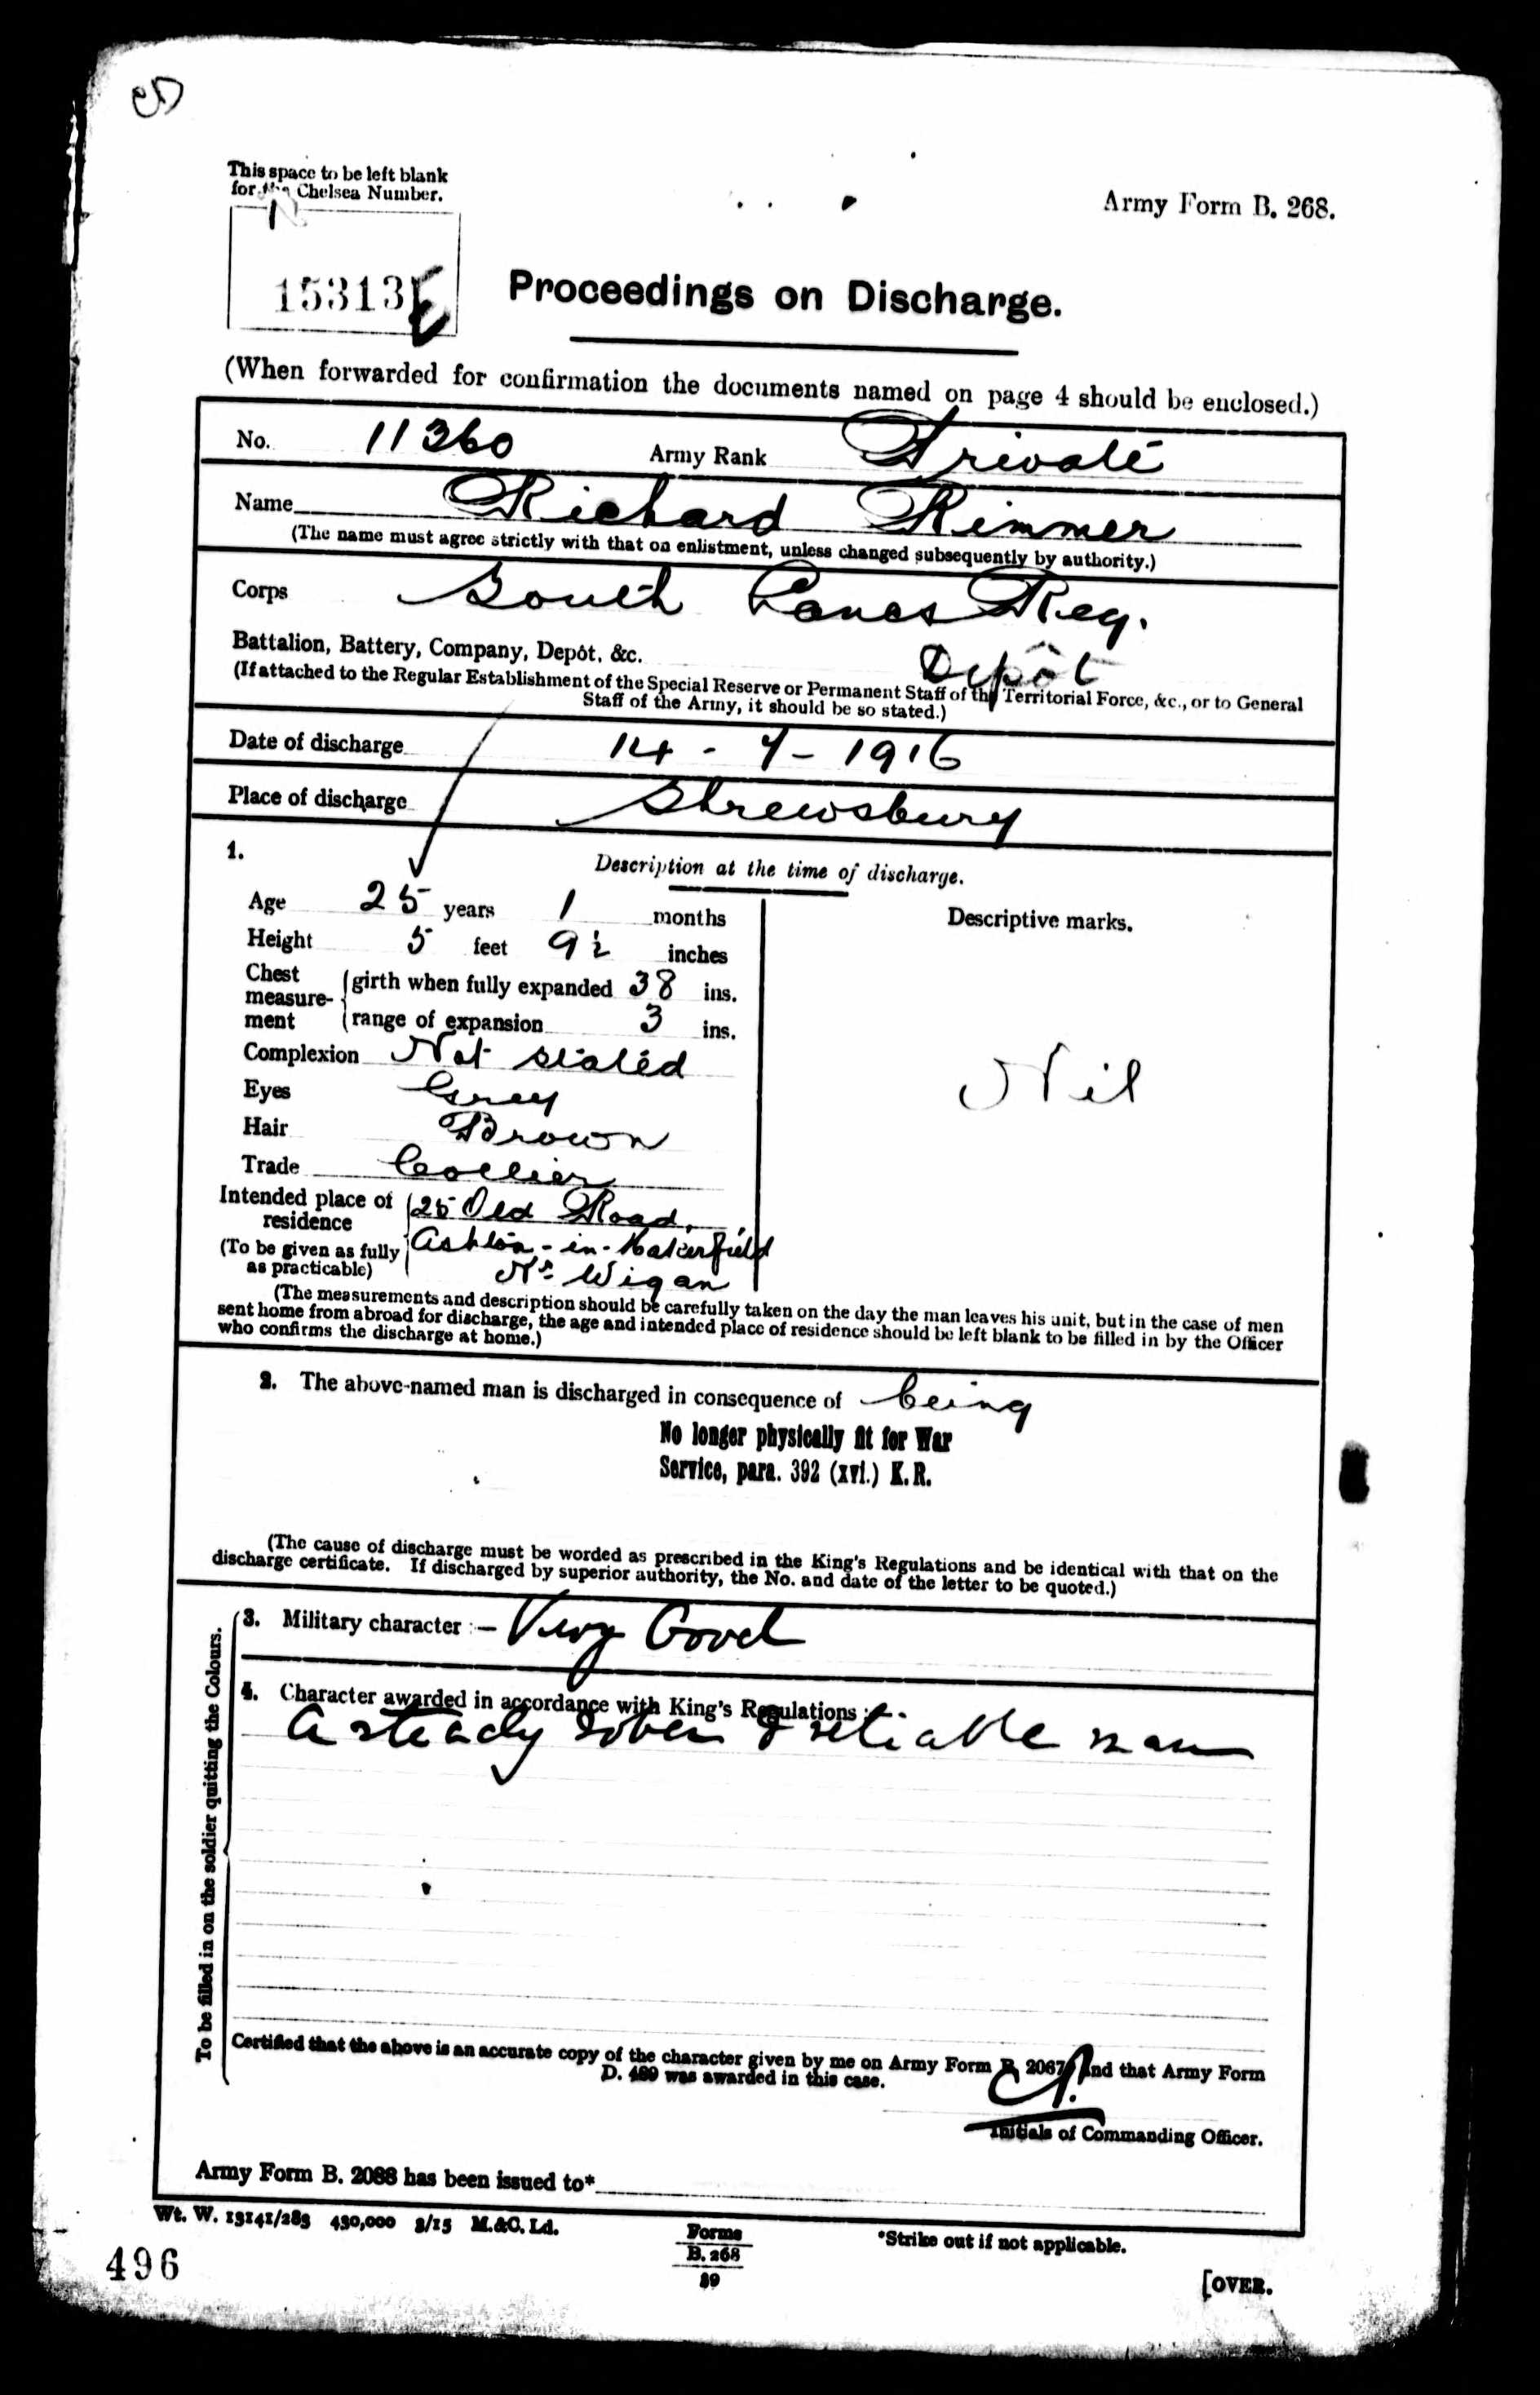 This space to be left blank
for the Chelsea Number.
15313
Army Form B. 268.
Proceedings on Discharge.
(When forwarded for confirmation the documents named on page 4 should be enclosed.)
No. 11360 Army Rank Private
Name Richard Rimmer
(The name must agree strictly with that on enlistment, unless changed subsequently by authority.)
Corps South Lancs Reg.
Battalion, Battery, Company, Depôt, &c. Depôt
(If attached to the Regular Establishment of the Special Reserve or Permanent Staff of the Territorial Force, &c., or to General
Staff of the Army, it should be so stated.)
Date of discharge 14 - 7 - 1916
Place of discharge Shrewsbury
1. Description at the time of discharge.
Age 25 years 1 months
Height 5 feet 9½ inches
Chest measure-ment
girth when fully expanded 38 ins.
range of expansion 3 ins.
Complexion Not stated
Eyes Grey
Hair Brown
Trade Collier
Intended place of residence
(To be given as fully as practicable)
25 Old Road,
Ashton-in-Makerfield
Nr Wigan
Descriptive marks.
Nil
(The measurements and description should be carefully taken on the day the man leaves his unit, but in the case of men
sent home from abroad for discharge, the age and intended place of residence should be left blank to be filled in by the Officer
who confirms the discharge at home.)
2. The above-named man is discharged in consequence of being
No longer physically fit for War
Service, para. 392 (xvi.) K.R.
(The cause of discharge must be worded as prescribed in the King's Regulations and be identical with that on the
discharge certificate. If discharged by superior authority, the No. and date of the letter to be quoted.)
To be filled in on the soldier quitting the Colours.
3. Military character :— Very Good
4. Character awarded in accordance with King's Regulations :—
A steady sober & reliable man
Certified that the above is an accurate copy of the character given by me on Army Form B. 2067, and that Army Form
D. 489 was awarded in this case.
Initials of Commanding Officer.
Army Form B. 2088 has been issued to*
Wt. W. 13141/283 430,000 3/15 M.&C. Ld.
Forms
B. 268
39
*Strike out if not applicable.
496
[OVER.